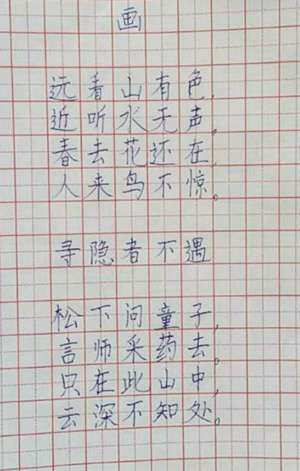 画
远看山有色，
近听水无声。
春去花还在，
人来鸟不惊。
寻隐者不遇
松下问童子，
言师采药去。
只在此山中，
云深不知处。